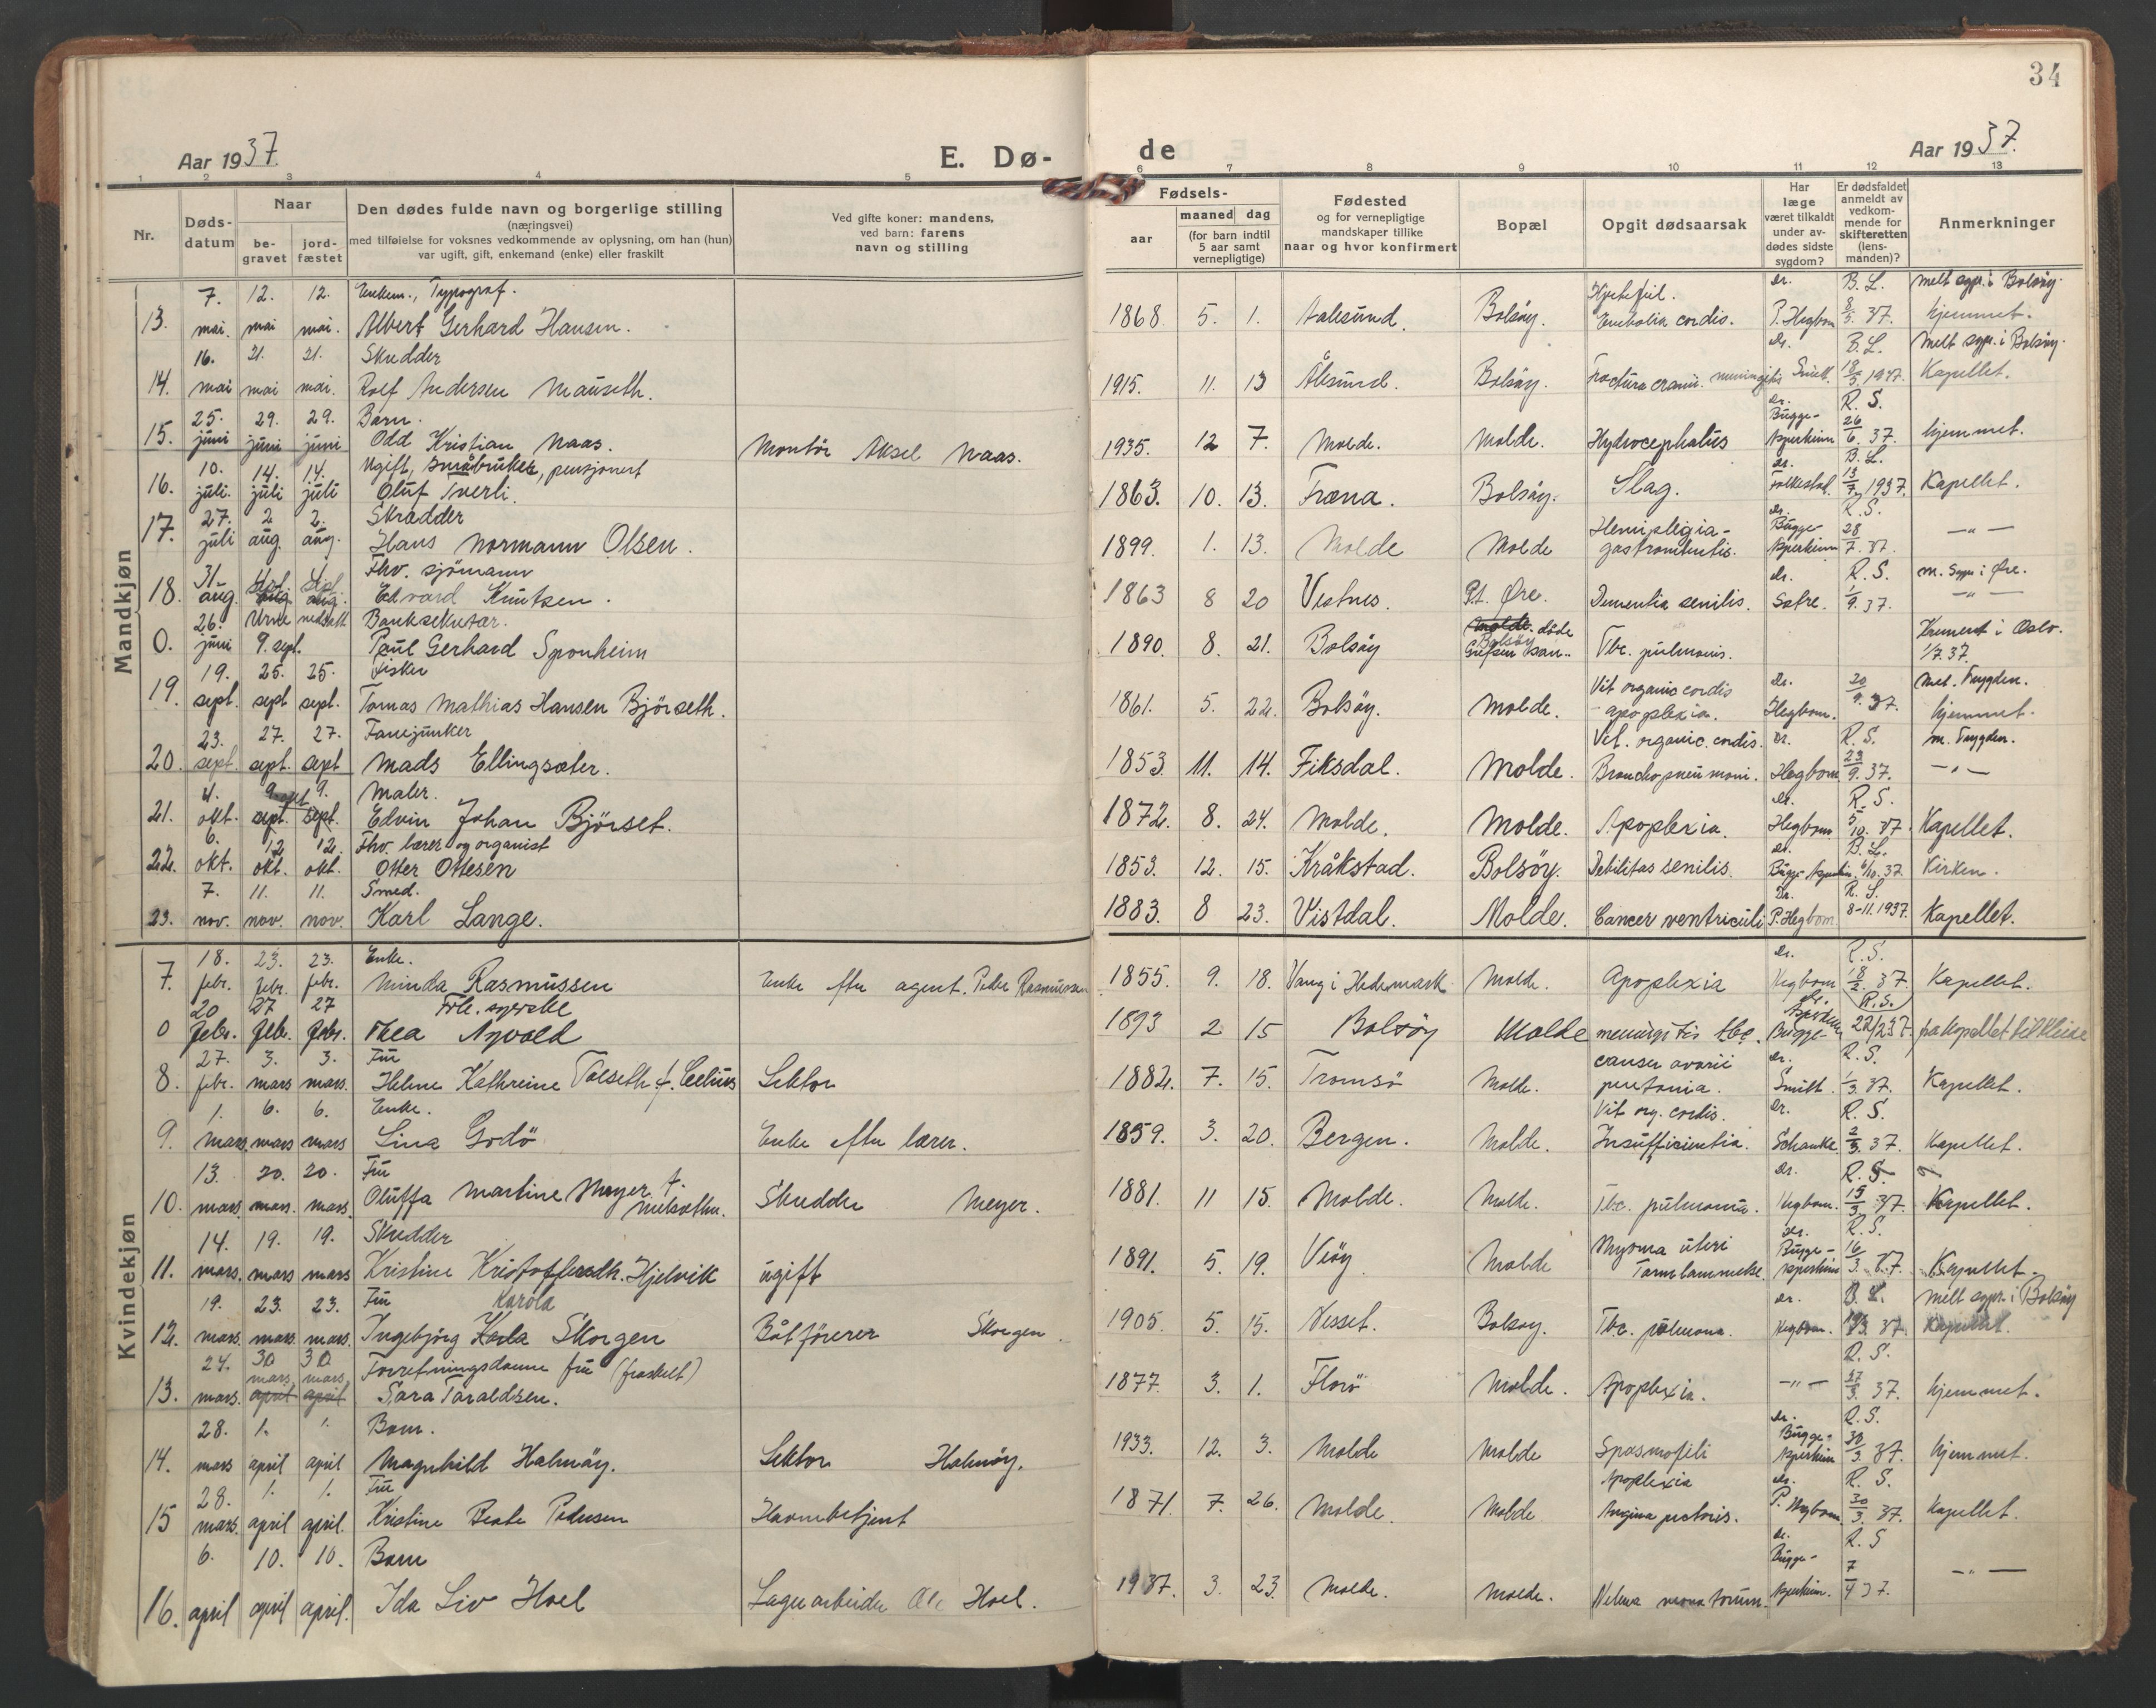 34
Aar 1937.
E. Dø-
de
Aar 1937.
1 2 3 4 5 6 7 8 9 10 11 12 13
Nr.
Døds-
datum
Naar
be-
gravet
jord-
fæstet
Den dødes fulde navn og borgerlige stilling
(næringsvei)
med tilføielse for voksnes vedkommende av oplysning, om han (hun)
var ugift, gift, enkemand (enke) eller fraskilt
Ved gifte koner: mandens,
ved barn: farens
navn og stilling
Fødsels-
aar
maaned dag
(for barn indtil
5 aar samt
vernepligtige)
Fødested
og for vernepligtige
mandskaper tillike
naar og hvor konfirmert
Bopæl
Opgit dødsaarsak
Har
læge
været tilkaldt
under av-
dødes sidste
sygdom?
Er dødsfaldet
anmeldt av
vedkom-
mende for
skifteretten
(lens-
manden)?
Anmerkninger
Mandkjøn
7. 12. 12. Enkem., Typograf. Hjertefeil. Dr. B. L. melt sogn. i Bolsøy.
13. mai. mai mai. Albert Gerhard Hansen. 1868. 5. 1. Aalesund. Bolsøy. Embolia cordis. P. Hegbom 8/5. 37. hjemmet.
16. 21. 21. Skredder Dr. B. L. Melt sogn. i Bolsøy.
14. mai mai mai. Rolf Andersen Mauseth. 1915. 11. 13 Ålesund. Bolsøy. Fractura cranii. meningitis Smitt. 18/5 1937. Kapellet.
25. 29. 29. Barn. Dr. Bugge- R. S.
15. juni juni juni Odd Kristian Naas. Montör Aksel Naas. 1935. 12 7. Molde. Molde. Hydrocephalus Asperheim 26/6. 37. hjemmet.
10. 14. 14. Ugift, småbruker, pensjonert Dr. B. L.
16. juli. juli juli Oluf Tverli. 1863. 10. 13. Fræna. Bolsøy. Slag. 13/7 1937. Kapellet.
27. 2 2. Skradder Hemiplegia- Dr. Bugge- R. S.
17. juli aug. aug. Hans Normann Olsen. 1899. 1. 13. Molde Molde Asperheim 28/7. 37. —"—
31. Sept. Sept. Fhv. sjömann Dr. R. S. m. Sogn i Øre.
18. aug. aug aug. Edvard Knutsen. 1863 8 20 Vestnes. Pt. Øre. Dementia senilis. Sætre. 1/9. 37. —"—
26. Urne nedsatt Banksekretær. Molde. døde Bolsøy Kremert i Oslo.
0. juni 9. sept. Paul Gerhard Sponheim 1890. 8. 21. Bolsøy Grefsen San.. Tbc. pulmonis. 1/7. 37.
19. 25. 25. Fisker Vit organic cordis Dr. Mel. Trygden.
19. sept. sept sept. Tomas Mathias Hansen Björseth. 1861. 5. 22. Bolsøy. Molde. - apoplexia. Hegbom. 20/9. 37. hjemmet.
23. 27. 27. Fanejunker Vit. organic. cordis. Dr. R. S. m. Trygden.
20. sept. sept. sept Mads Ellingsæter. 1853. 11. 14. Fiksdal. Molde. Bronchopneumoni. Hegbom 23/9. 37. —"—
4. 9. okt 9. Maler. Dr. R. S.
21. okt. sept. sept. Edvin Johan Bjørset. 1872. 8. 24. Molde. Molde. Apoplexia. Hegbom 5/10. 37. Kapellet.
6. 12 12. Fhv. lærer og organist Dr. B. L.
22. okt. okt. okt. Otter Ottesen 1853. 12. 15. Kråkstad. Bolsøy. Debilitas senilis. Bugge-Asperheim. 6/10. 37 Kirken.
7. 11. 11. Smed. Dr. R. S.
23. nov. nov. nov. Karl Lange. 1883. 8 23. Vistdal. Molde. Cancer ventriculi P. Hegbom. 8-11. 1937. Kapellet.
Kvindekjøn
18. 23. 23. Enke. Dr. R. S.
7. febr. febr. febr. Minda Rasmussen Enke efter agent. Peder Rasmussen 1855. 9. 18. Vang i Hedemark Molde. Apoplexia Hegbom 18/2. 37. Kapellet.
20 27 27 Frk. syerske Dr. Asperheim (R.S.)
0 febr. febr. febr. Thea Agvold 1893 2 15 Bolsöy Molde meningitis tbc. Bugge- 22/2 37. fra kapellet til Kleive
27. 3. 3. Fru cancer ovarii Dr. R. S.
8. febr. mars mars. Helene Kathreine Tolseth f. Celius Lektor 1882. 7. 15. Tromsö Molde. Smitt. 1/3 37. Kapellet.
1. 6. 6. Enke. Vit org. cordis. Dr. R. S.
9. mars. mars mars Lina Godö Enke efter lærer. 1859. 3. 20. Bergen. Molde. Insufficientia. Schanke 2/3. 37. Kapellet.
13. 20. 20. Fru Dr. R. S.
10. mars. mars. mars. Oluffa Martine Meyer f. Skredder Meyer. 1881. 11 15. Molde. Molde. Tbc. pulmona. Hegbom. 15/3 37. Kapellet.
14. 19. 19. Skredder Myoma uteri Dr. Bugge- R. S.
11. mars. mars mars Kristine Kristoffersdtr. Hjelvik ugift 1891. 5. 19. Veöy Molde Tarmlammelse. Asperheim 16/3. 37. Kapellet.
19. 23. 23. Fru Karola Dr. B. L. Melt sogn. i Bolsöy
12. mars. mars. mars. Ingebjörg Karla Skorgen Båtförerer Skorgen. 1905. 5. 15. Nesset. Bolsøy. Tbc. pulmona. Hegbom. 19/3. 37. Kapellet.
24. 30 30 Forretningsdame fru (fraskilt) R. S.
mars. mars.
13. mars. april april Sara Taraldsen. 1877. 3. 1. Florö Molde. Apoplexia. —"— 27/3. 37. hjemmet.
28. 1. 1. Barn. Dr. Bugge- R. S.
14. mars april april Magnhild Halmöy. Lektor Halmöy. 1933. 12. 3. Molde Molde Spasmofili Asperheim 30/3. 37. hjemmet.
28. 1. 1. Fru Apoplexia Dr. R. S.
15 mars. april april. Kristine Beate Pedersen Havnebetjent 1871. 7. 26. Molde. Molde. Angina pectoris. P. Hegbom. 30/3. 37. Kapellet.
6. 10. 10. Barn Dr. Bugge- R. S
16. april april april. Ida Liv Hoel Lagerarbeider Ole Hoel. 1937. 3. 23 Molde. Molde. Melena neonatorum. Asperheim. 7/4 37. —"—